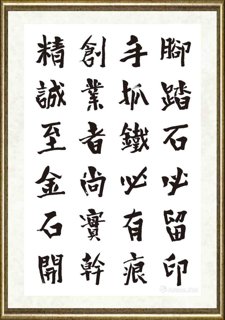 腳踏石必留印
手抓鐵必有痕
創業者尚實幹
精誠至金石開